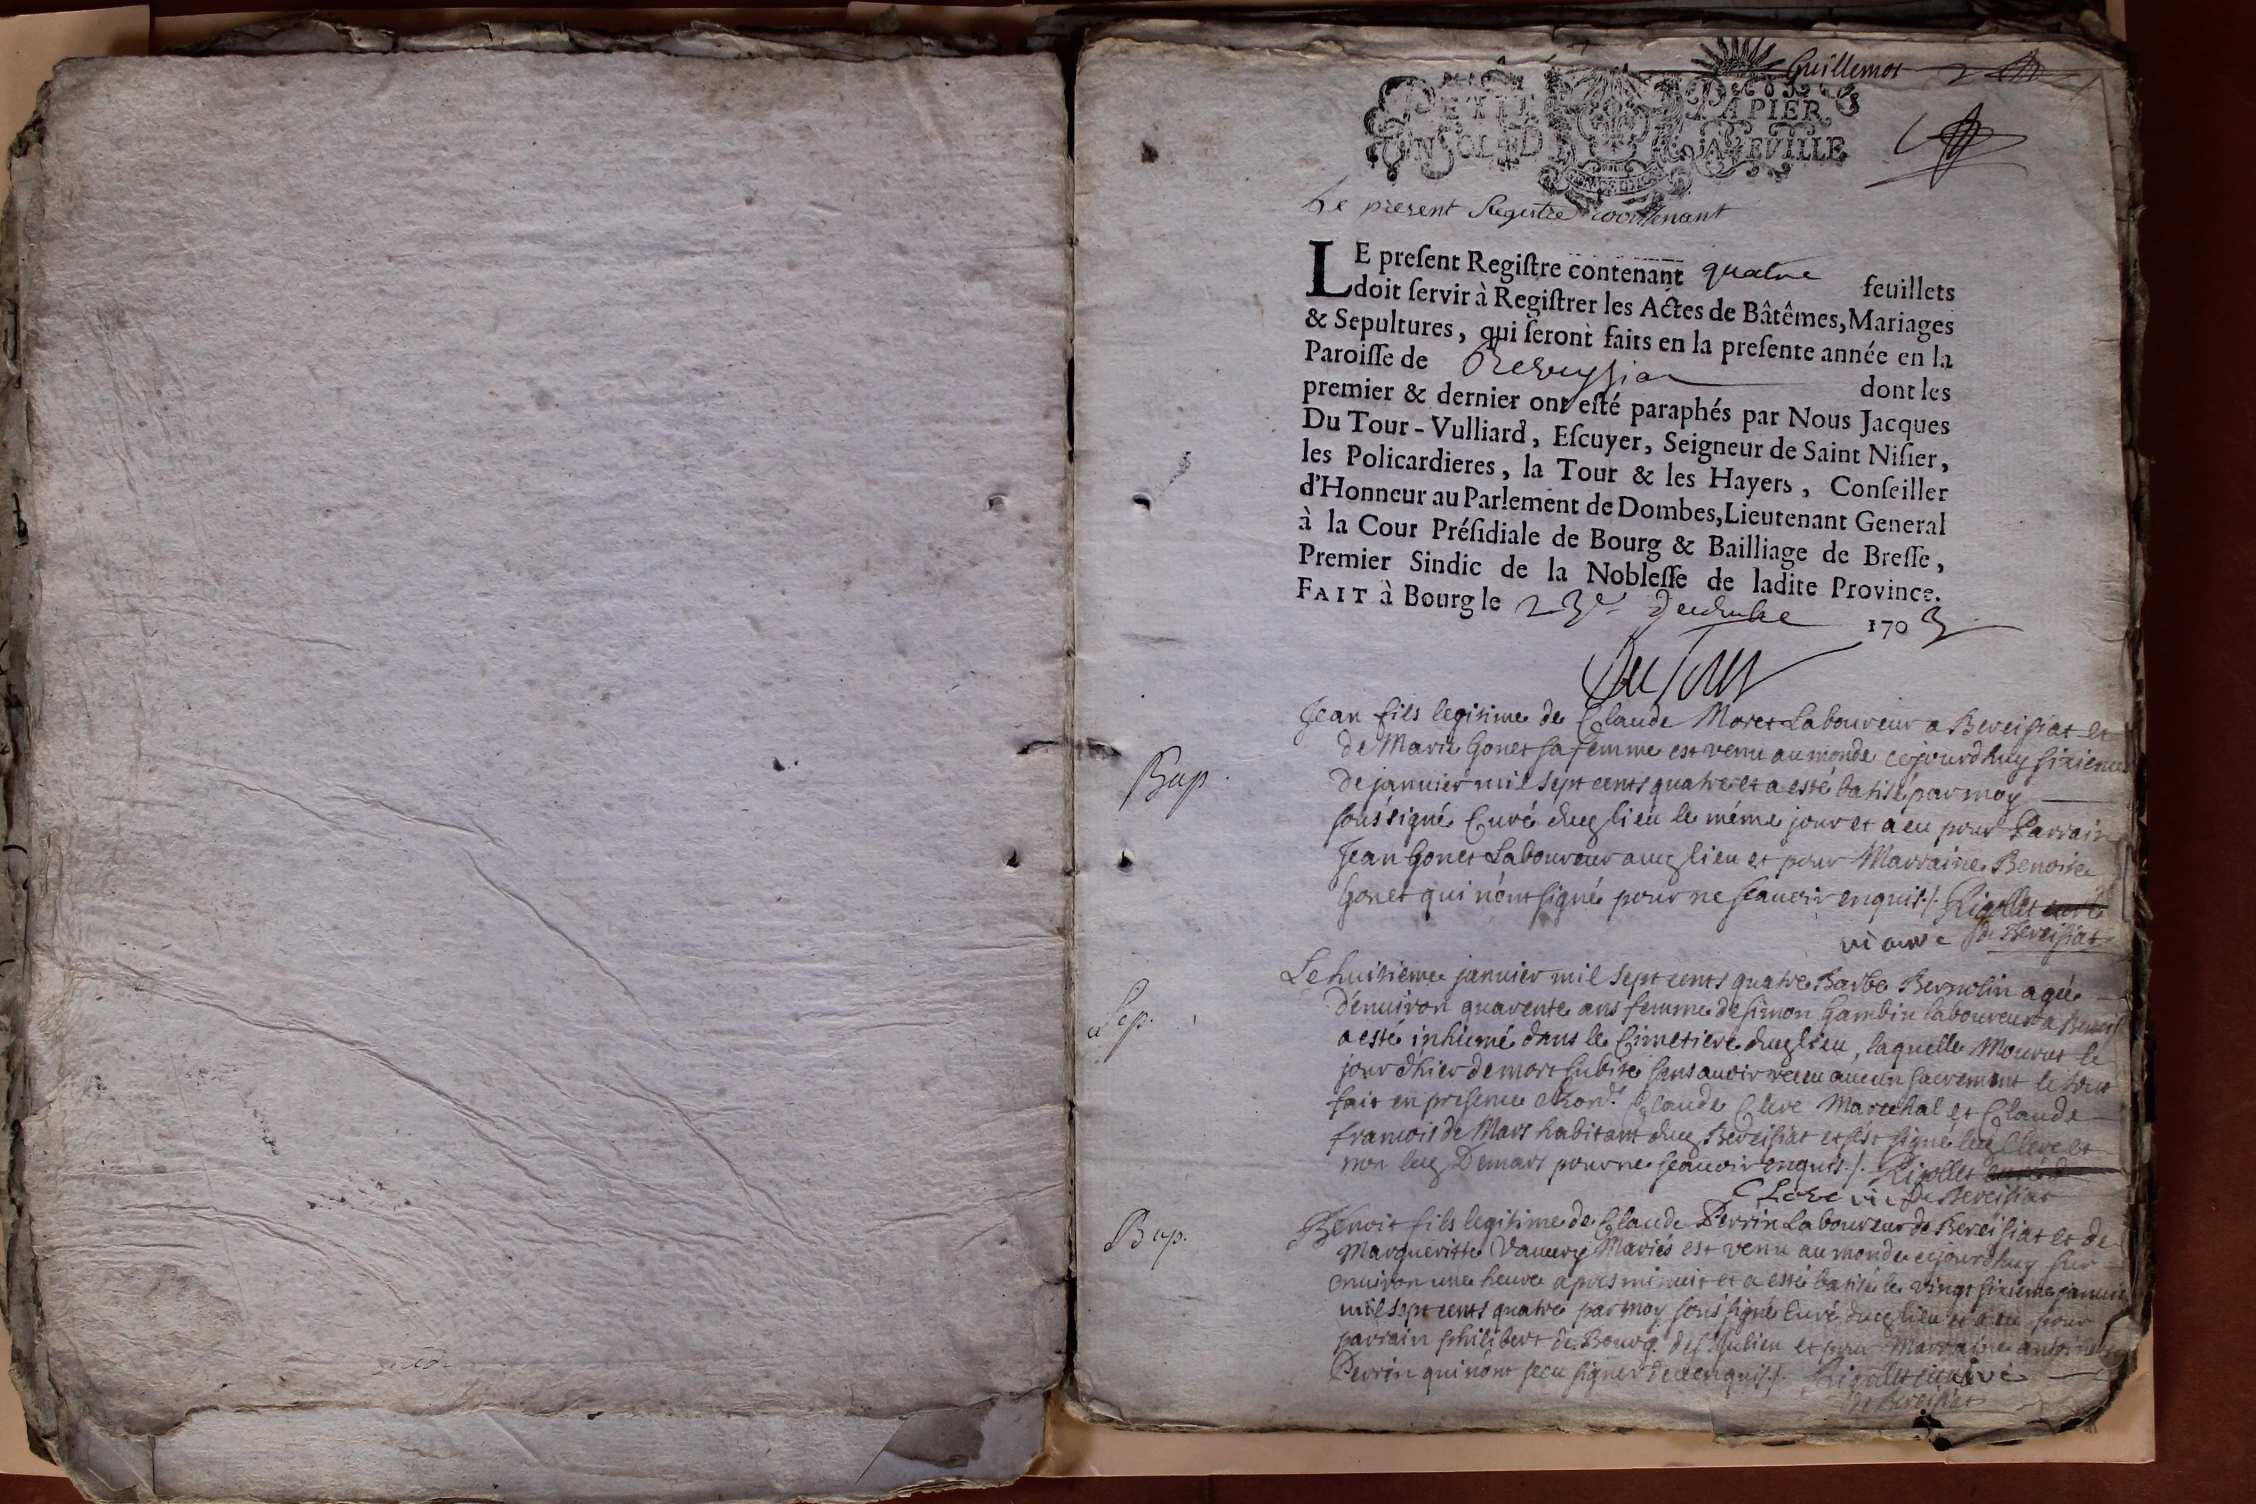 Guillemot
PETIT PAPIER
UN SOL LA FEUILLE
Le present Registre contenant
LE preſent Regiſtre contenant quatre feuillets
doit ſervir à Regiſtrer les Actes de Bâtêmes, Mariages
& Sepultures, qui ſeront faits en la preſente année en la
Paroiſſe de dont les
premier & dernier ont eſté paraphés par Nous Jacques
Du Tour-Vulliard, Eſcuyer, Seigneur de Saint Niſier,
les Policardieres, la Tour & les Hayers, Conſeiller
d'Honneur au Parlement de Dombes, Lieutenant General
à la Cour Préſidiale de Bourg & Bailliage de Breſſe,
Premier Sindic de la Nobleſſe de ladite Province.
FAIT à Bourg le 23e decembre 1703
Du Tour
Bap.
Jean fils legitime de Claude Moret Laboureur a Bereisiat et
de Marie Gonet sa femme est venu au monde cejourdhuy sixieme
de janvier mil sept cents quatre et a esté batisé par moy
sousigné Curé dud lieu le méme jour et a eu pour Parrain
Jean Gonet Laboureur aud lieu et pour Marraine Benoite
Gonet qui n'ont signé pour ne scavoir enquis /. Rigollet curé
vicaire de Bereisiat
Sep.
Le huitieme janvier mil sept cents quatre Barbe agée
d'environ quarente ans femme de simon Gambin laboureur a
a esté inhumé dans le Cimetiere dud lieu, laquelle Mourut le
jour d'hier de mort subite sans avoir receu aucun sacrement le tout
fait en presence Claude Clere Marechal et Claude
francois de Mars habitant dud Bereisiat et s'est signé led Clere et
non led Demars pour ne scavoir enquis /. Rigollet
Clere vic de Bereisiat
Bap.
Benoit fils legitime de Claude Perrin Laboureur de Bereisiat et de
Margueritte Mariés est venu au monde cejourdhuy sur
environ une heure apres minuit et a esté batisé le vingt sixieme janvier
mil sept cents quatre par moy sousigné Curé dud lieu et a eu pour
parrain philibert de Bourg de St Julien et pour Marraine
Perrin qui n'ont sceu signer de ce enquis /. Rigollet vicaire
de Bereisiat